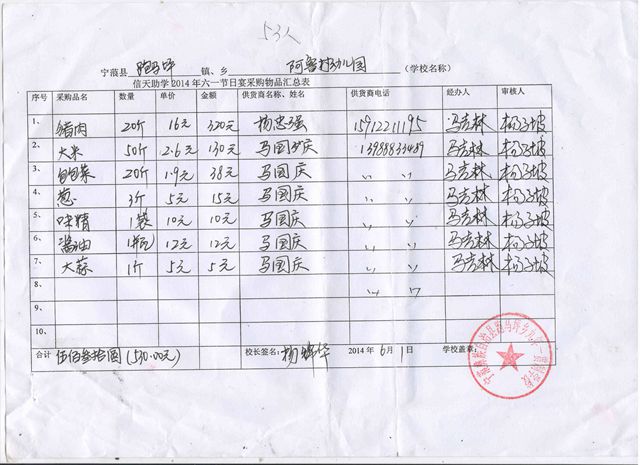 53人
宁蒗县 跑马坪 镇、乡 阿鲁村幼儿园 (学校名称)
信天助学2014年六一节日宴采购物品汇总表
序号 采购品名 数量 单价 金额 供货商名称、姓名 供货商电话 经办人 审核人
1、 猪肉 20斤 16元 320元 杨忠强 15912211195 马志林 杨子坡
2、 大米 50斤 2.6元 130元 马国庆 13988833489 马志林 杨子坡
3、 白菜 20斤 1.9元 38元 马国庆 〃 〃 马志林 杨子坡
4、 葱 3斤 5元 15元 马国庆 〃 〃 马志林 杨子坡
5、 味精 1袋 10元 10元 马国庆 〃 〃 马志林 杨子坡
6、 酱油 1瓶 12元 12元 马国庆 〃 〃 马志林 杨子坡
7、 大蒜 1斤 5元 5元 马国庆 〃 〃 马志林 杨子坡
8、 〃 〃
9、
10、
合计 伍佰叁拾圆(530.00元) 校长签名: 杨 华 2014年6月1日 学校盖章:
宁蒗彝族自治县跑马坪乡